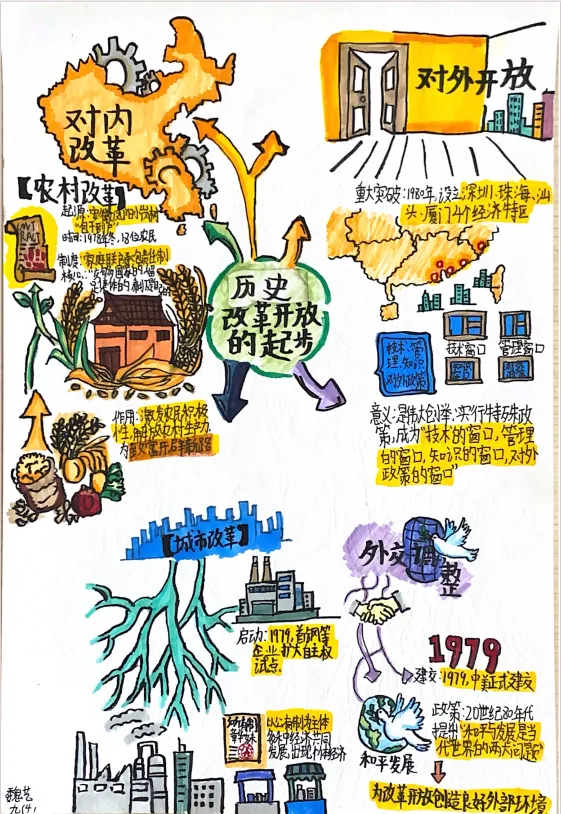 对内
改革
【农村改革】
起源:安徽凤阳小岗村
"包干到户"
时间:1978年冬,18位农民
制度:家庭联产承包责任制
CONT
RACT
作用:激发农民积极
性,解放农村生产力,
对外开放
重大突破:1980年,设立深圳、珠海、汕
头、厦门4个经济特区
历史
改革开放
的起步
技术、管
理、知识
对外政策
技术窗口
管理窗口
意义:是伟大创举,实行特殊政
策,成为"技术的窗口,管理
的窗口,知识的窗口,对外
政策的窗口"
【城市改革】
启动:1979,首钢等
企业扩大自主权
试点
以公有制为主体
多种经济共同
发展,出现个体经济
外交调整
1979
建交:1979,中美正式建交
政策:20世纪80年代
提出"和平与发展是当
代世界的两大问题"
和平发展
为改革开放创造良好外部环境
魏艺
九(4)